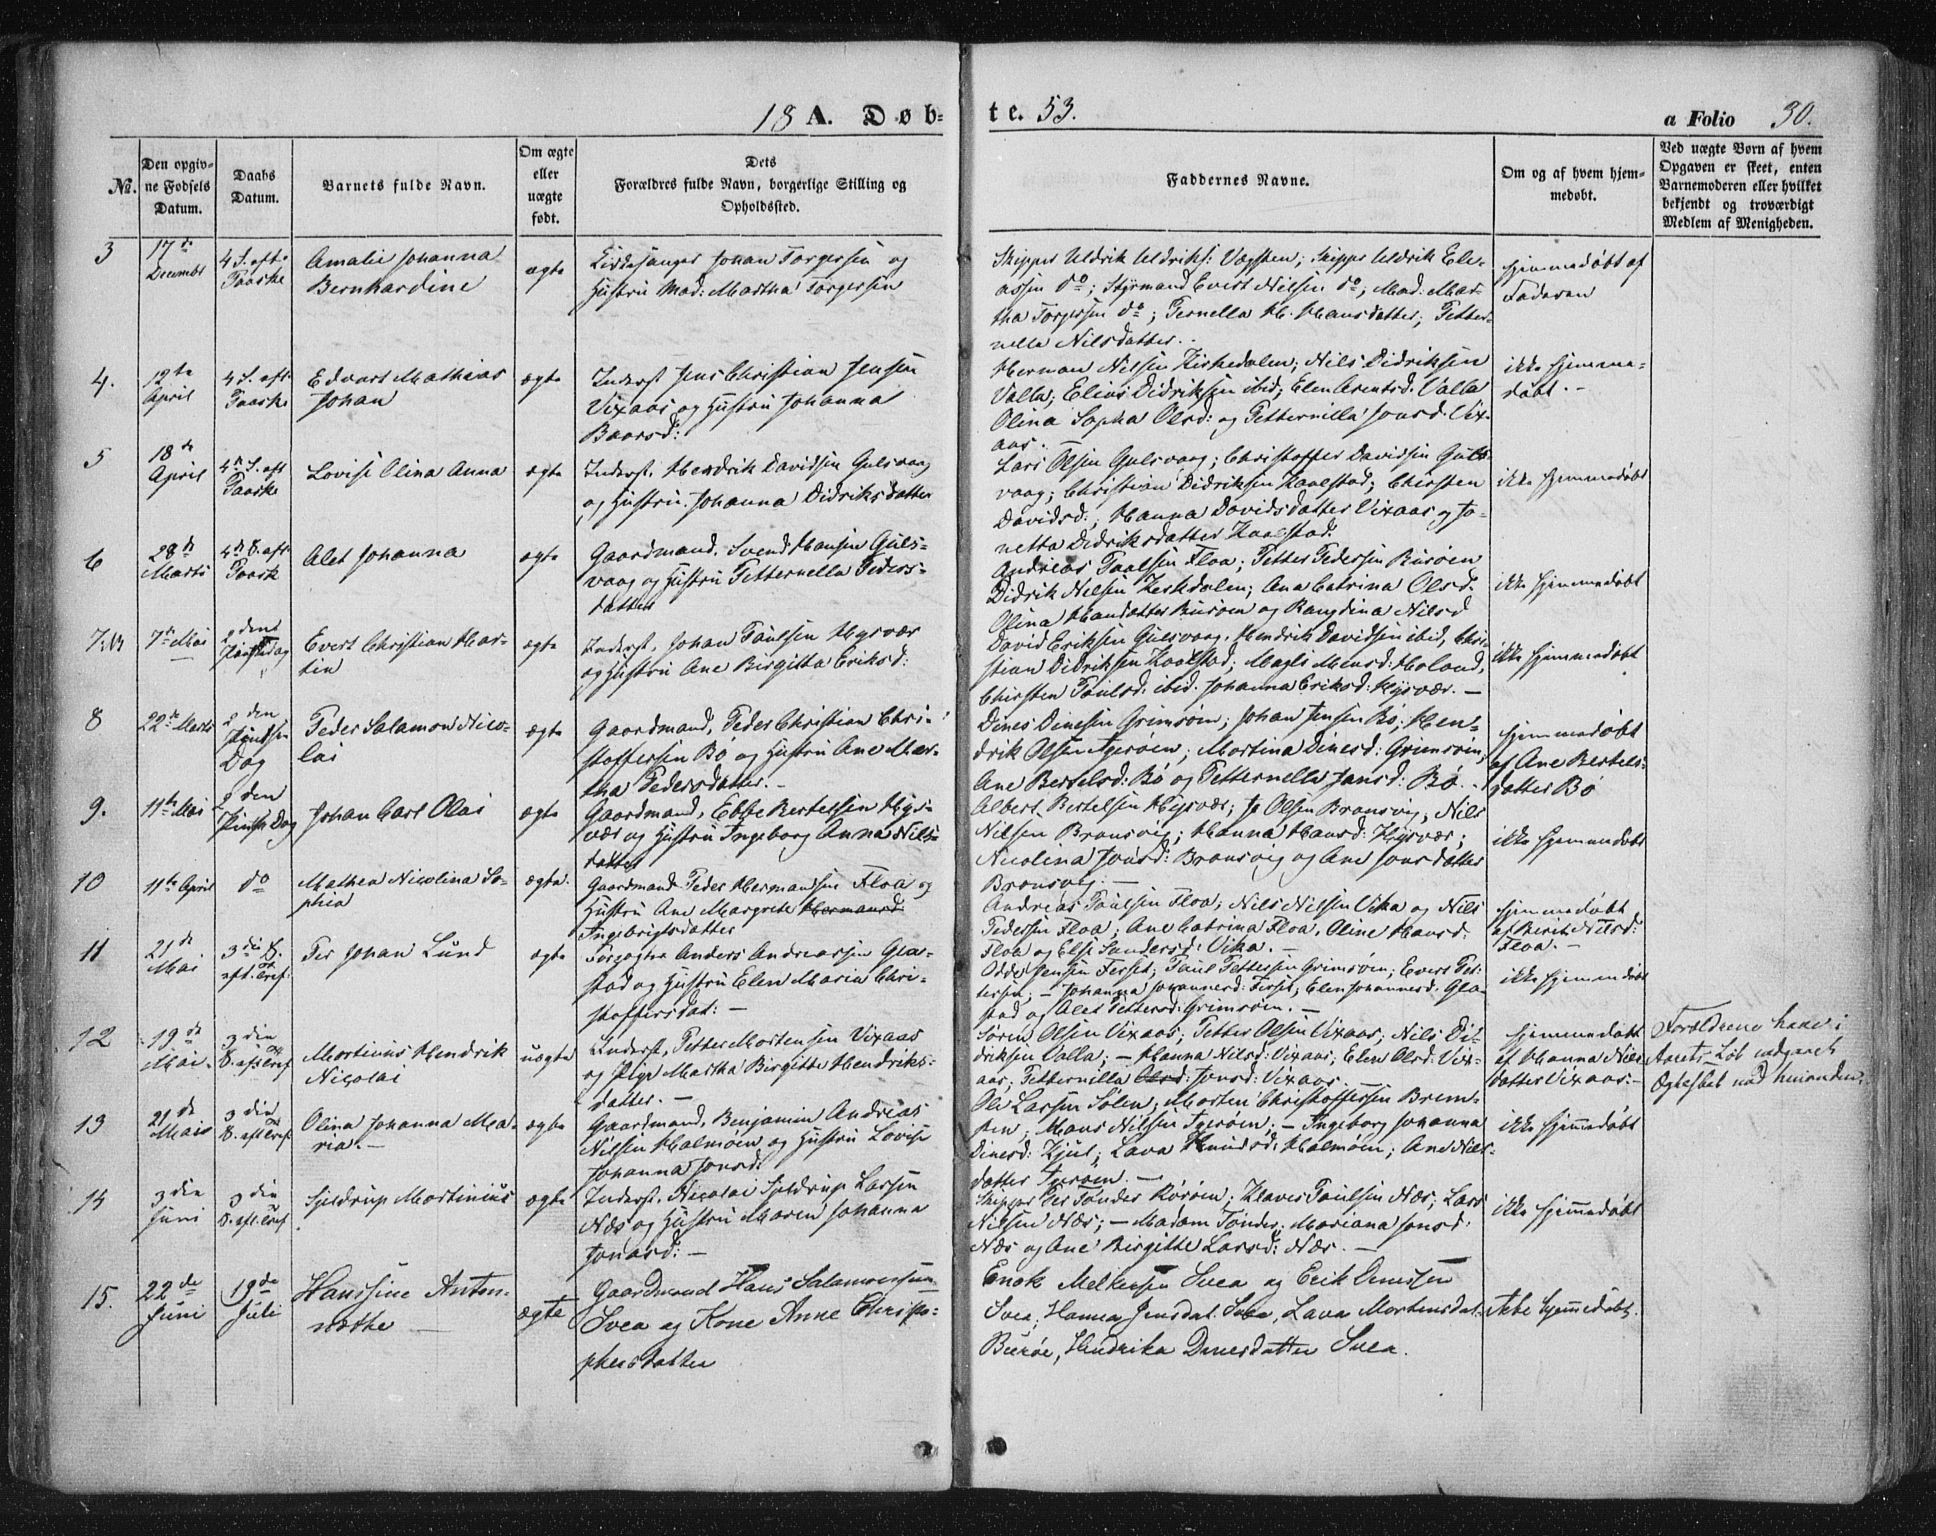 18 A. Døb-
te. 53.
a Folio 30.
No.
Den opgivne Fødsels Datum.
Daabs Datum.
Barnets fulde Navn.
Om ægte eller uægte født.
Dets Forældres fulde Navn, borgerlige Stilling og Opholdssted.
Faddernes Navne.
Om og af hvem hjemmedøbt.
Ved uægte Børn af hvem Opgaven er skeet, enten Barnemoderen eller hvilket bekjendt og troværdigt Medlem af Menigheden.
3
17de Decembr
4 S. eft. Paaske
Amalie Johanna
Bernhardine
ægte
Johan Torgersen og
Hustru Mad: Martha Torgersen
Skipper Uldrik Uldriks: Skipper Uldrik Ele-
assen do; Styrmand Evert Nilsen do; Mad: Mar-
tha Torgersen do; Pernella M. Hansdatter; Petter-
nella Nilsdatter.
hjemmedøbt af
Faderen
4.
12te April
4 S. eft. Paaske
Edvart Mathias
Johan
ægte
Inderst Jens Christian Jensen
Vixaas og Hustru Johanna
Baarsd:
Herman Nilsen Kirkedalen; Nils Didriksen
Valla; Elias Didriksen ibid; Elen Arentsd. Valla
Olina Sophia Olsd: og Petternilla Jonsd. Vix-
aas.
ikke hjemme-
døbt.
5
18de April
4de S. eft Paaske
Lovise Olina Anna
ægte
Inderst. Hendrik Davidsen Gulsvaag
og Hustru Johanna Didriksdatter
Lars Olsen Gulsvaag; Christoffer Davidsen Guls-
vaag; Christian Didriksen Kaalstad; Chirsten
Davidsd.; Hanna Davidsdatter Vixaas og Jo-
netta Didriksdatter Kaalstad.
ikke hjemmedøbt
6
28de Marts
4de S. eft Paask
Alet Johanna
ægte
Gaardmand. Svend Hansen Guls-
vaag og Hustru Petternella Peders-
datter
Andreas Paulsen Floa; Petter Pedersen Burøen
Didrik Nilsen Kirkdalen; Ana Catrina Olsd.
Olina Hansdatter Burøen og Rangdina Nilsd
ikke hjemmedøbt
7
7de Mai
2den Pintsedag
Evert Christian Mar-
tin
ægte
Inderst, Johan Paulsen Hysvær
og Hustru Ane Birgitta Eriksd:
David Eriksen Gulsvaag, Hendrik Davidsen ibid, Chri-
stian Didriksen Kaalstad; Magli Monsd: Holand,
Chirsten Paulsd. ibid. Johanna Eriksd: Hysvær.
ikke hjemmedøbt
8
22de Marts
2den Pindse Dag
Peder Salamon Nico-
lai
ægte
Gaardmand, Peder Christian Chri-
stoffersen Bø og Hustru Ane Mar-
tha Pedersdatter.
Dines Dinesen Grimsøen; Johan Jensen Bø; Hen-
drik Olsen Igerøen; Martina Dinesd: Grimsøen;
Ane Bertelsd: Bø og Petternella Jansd: Bø.
hjemmedøbt
af Ane Bertels-
datter Bø
9.
11te Mai
2den Pinse Dag
Johan Carl Olai
ægte
Gaardmand, Ebbe Bertelsen Hys-
vær og Hustru Ingeborg Anna Nils-
datter
Albert Bertelsen Hysvær; Jo Olsen Bransvig, Nils
Nilsen Bransvig; Hanna Hansd: Hysvær;
Nicolina Jonsd: Bransvig og Ane Jonsdatter
Bransvig.
ikke hjemmedøbt
10
11te April
do
Mathea Nicolina So-
phia
ægte.
Gaardmand Peder Hermandsen Floa og
Hustru Ane Margrete Hermansd:
Ingebrigtsdatter
Andreas Paulsen Floa; Nils Nilsen Vika og Nils
Pedersen Floa; Ane Catrina Floa, Oline Hansd:
Floa og Else Sandersd: Vika.
hjemmedøbt
af Berit Nilsd:
Floa.
11
21de Mai
3die S. eft. Tref.
Per Johan Lund
ægte
Anders Andreassen Gla-
stad og Hustru Elen Maria Chri-
stoffersdat:
Odde Jensen Ferset; Paul Pettersen Grimsøen; Evert Pet-
tersen; Johanna Johannesd: Ferset; Elen Johannesd: Gla-
stad og Alet Pettersd: Grimsøen.
ikke hjemmedøbt
12
19de Mai.
3die S. eft Tref
Martinus Hendrik
Nicolai
uægte
Inderst, Petter Mortensen Vixaas
og Pige Martha Birgitte Hendriks-
datter.
Søren Olsen Vixaas; Petter Olsen Vixaas; Nils Did-
riksen Valla; Hanna Nilsd: Vixaas; Elen Olsd: Vix-
aas; Petternilla Olsd: Jonsd: Vixaas.
hjemmedøbt
af Hanna Nils-
datter Vixaas.
Forældrene have i
Aarets Løb indgaaet
Ægteskab med hinanden.
13
21de Mai
3die S. eft Tref
Olina Johanna Ma-
ria.
ægte
Gaardmand, Benjamin Andreas
Nilsen Halmøen og Hustru Lovise
Johanna Jonsd:
Ole Larsen Solem; Morten Christoffersen Brem-
sten; Hans Nilsen Igerøen; Ingeborg Johanna
Dinesd: Kjul; Lava Knudsd: Halmøen; Ane Nils-
datter Igerøen.
ikke hjemmedøbt
14
3die Juni
3die S. eft. Tref
Hjeldrup Martinius
ægte
Inderst. Nicolai Hjeldrup Larsen
Næs og Hustru Maren Johanna
Jonasd:
Skipper Per Tønder Rørøen; Klaves Paulsen Næs; Lars
Nilsen Næs; Madam Tønder; Mariana Jonsd.
Næs og Ane Birgitte Larsd: Næs.
ikke hjemmedøbt
15.
22de Juni
19de Juli
Hansine Anton-
nethe
ægte
Gaardmand Hans Salamonsen
Svea og Kone Anne Christo-
phersdatter
Enok Melkersen Svea og Erik Dinessen
Svea, Hanna Jensdat. Svea, Lava Mortensdat.
Burøe, Hendrika Dinesdatter Svea.
Ikke hjemmedøbt.